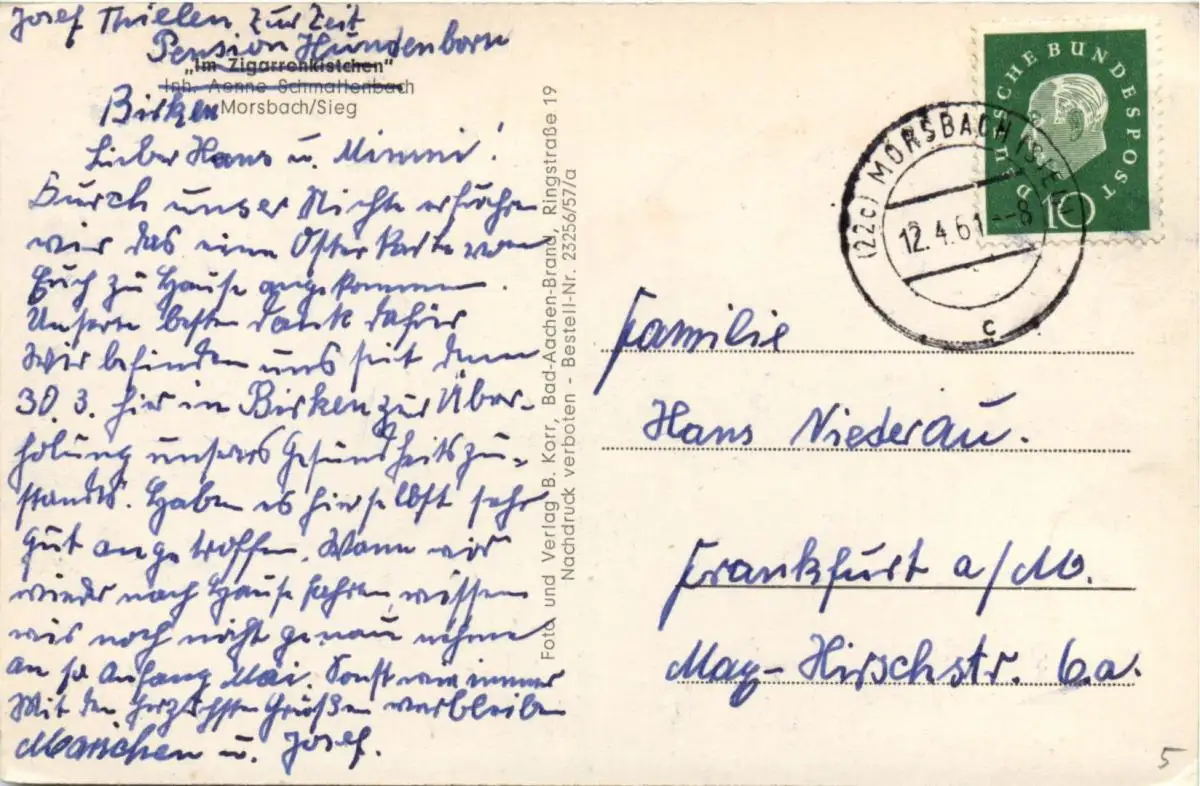 Josef Thielen zur Zeit
Pension Hundenborn
„Im Zigarrenkistchen"
Inh. Aenne Schmallenbach
Birken
Morsbach/Sieg
Lieber Hans u. Minni!
Durch unser Nichte erfuhren
wir das eine Osterkarte von
Euch zu Hause angekommen.
Unseren besten Dank dafür
Wir befinden uns seit dem
30. 3. hier in Birken zur Über-
holung unsers Gesundheitszu-
standes. Haben es hierselbst sehr
gut angetroffen. Wann wir
wieder nach Hause fahren, wissen
wir noch nicht genau nehme
an so Anfang Mai. Sonst wie immer
Mit den herzlichsten Grüßen verbleiben
Mariechen u. Josef.
Foto und Verlag B. Korr, Bad-Aachen-Brand, Ringstraße 19
Nachdruck verboten - Bestell-Nr. 23256/57/a
DEUTSCHE BUNDESPOST
10
(22c) MORSBACH (SIEG)
12.4.61
c
Familie
Hans Niederau.
Frankfurt a/M.
May-Hirschstr. 6a.
5